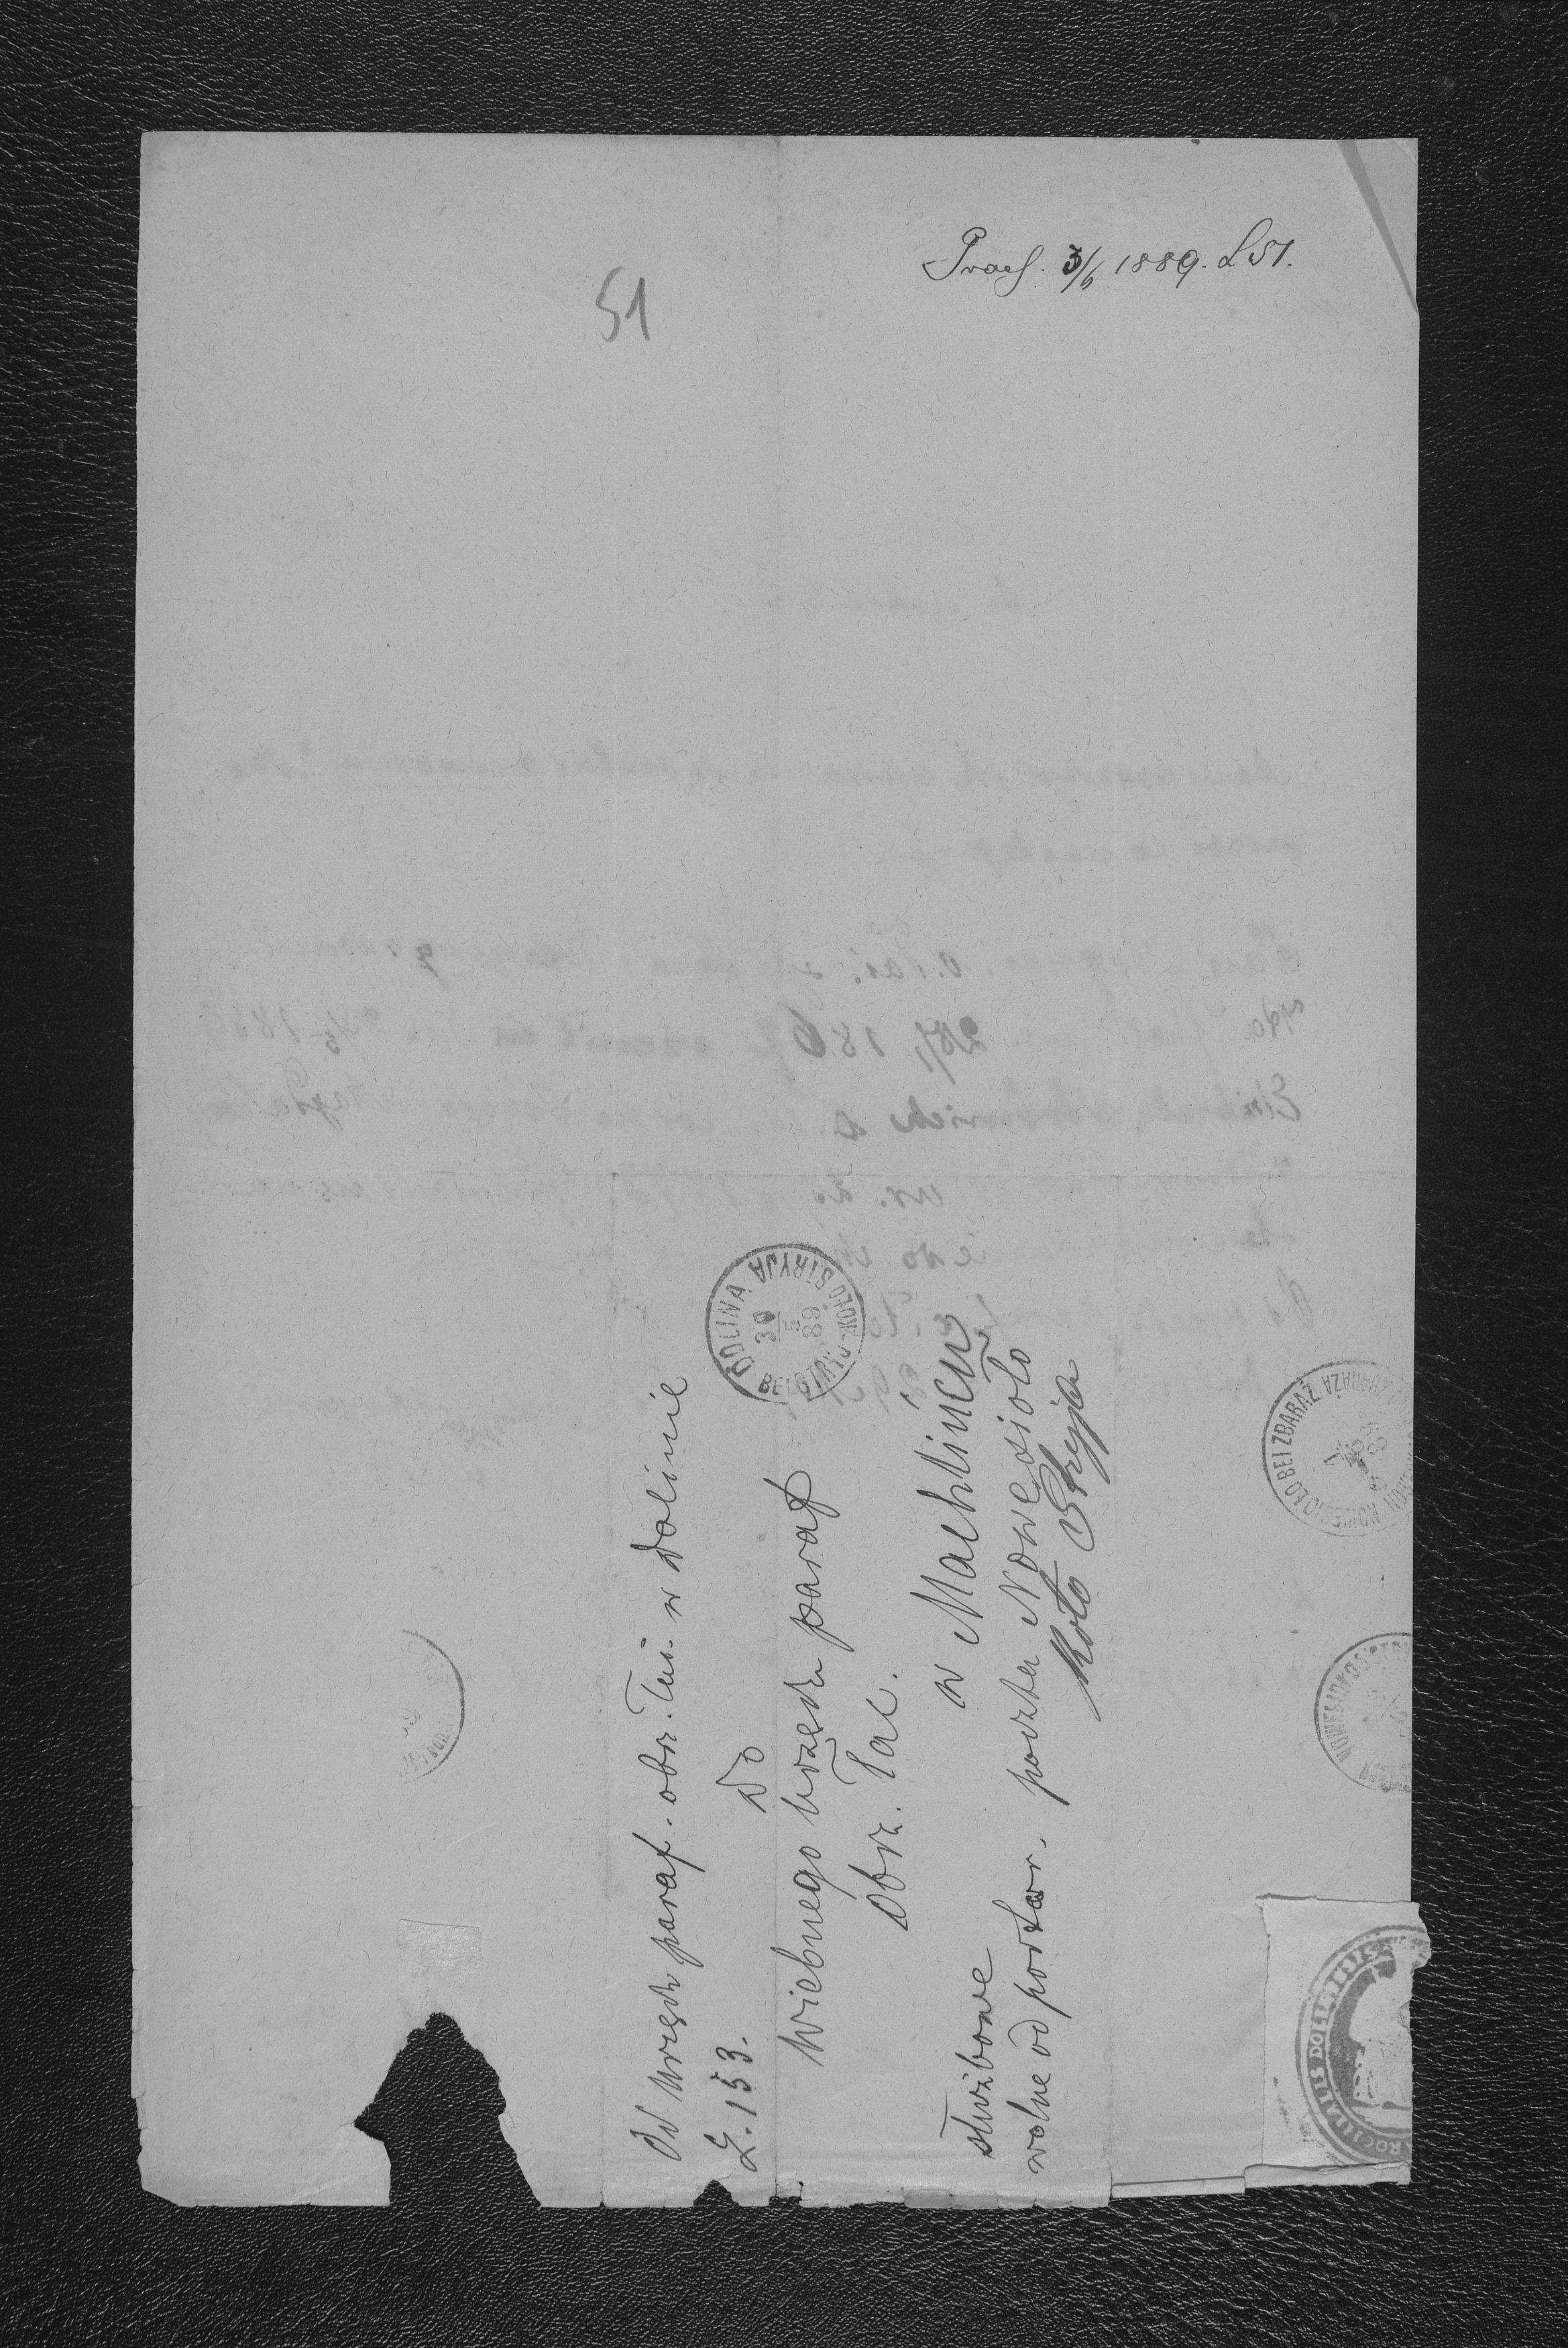 Praes. 3/6 1889. L 51.
51
Od urzędu paraf. obrz. łac. w Dolinie
L. 153.
Do
Wielebnego urzędu paraf
Obrz. łac.
w Machlińcu
służbowe
wolne od portor. poczta Nowesioło
koło Stryja
DOLINA
BEI STRYJ-KOŁO STRYJA
30
5
89
NOWESIOŁO BEI ZBARAŻ
ZBARAŻA
ROCHIALIS DOLINENSIS